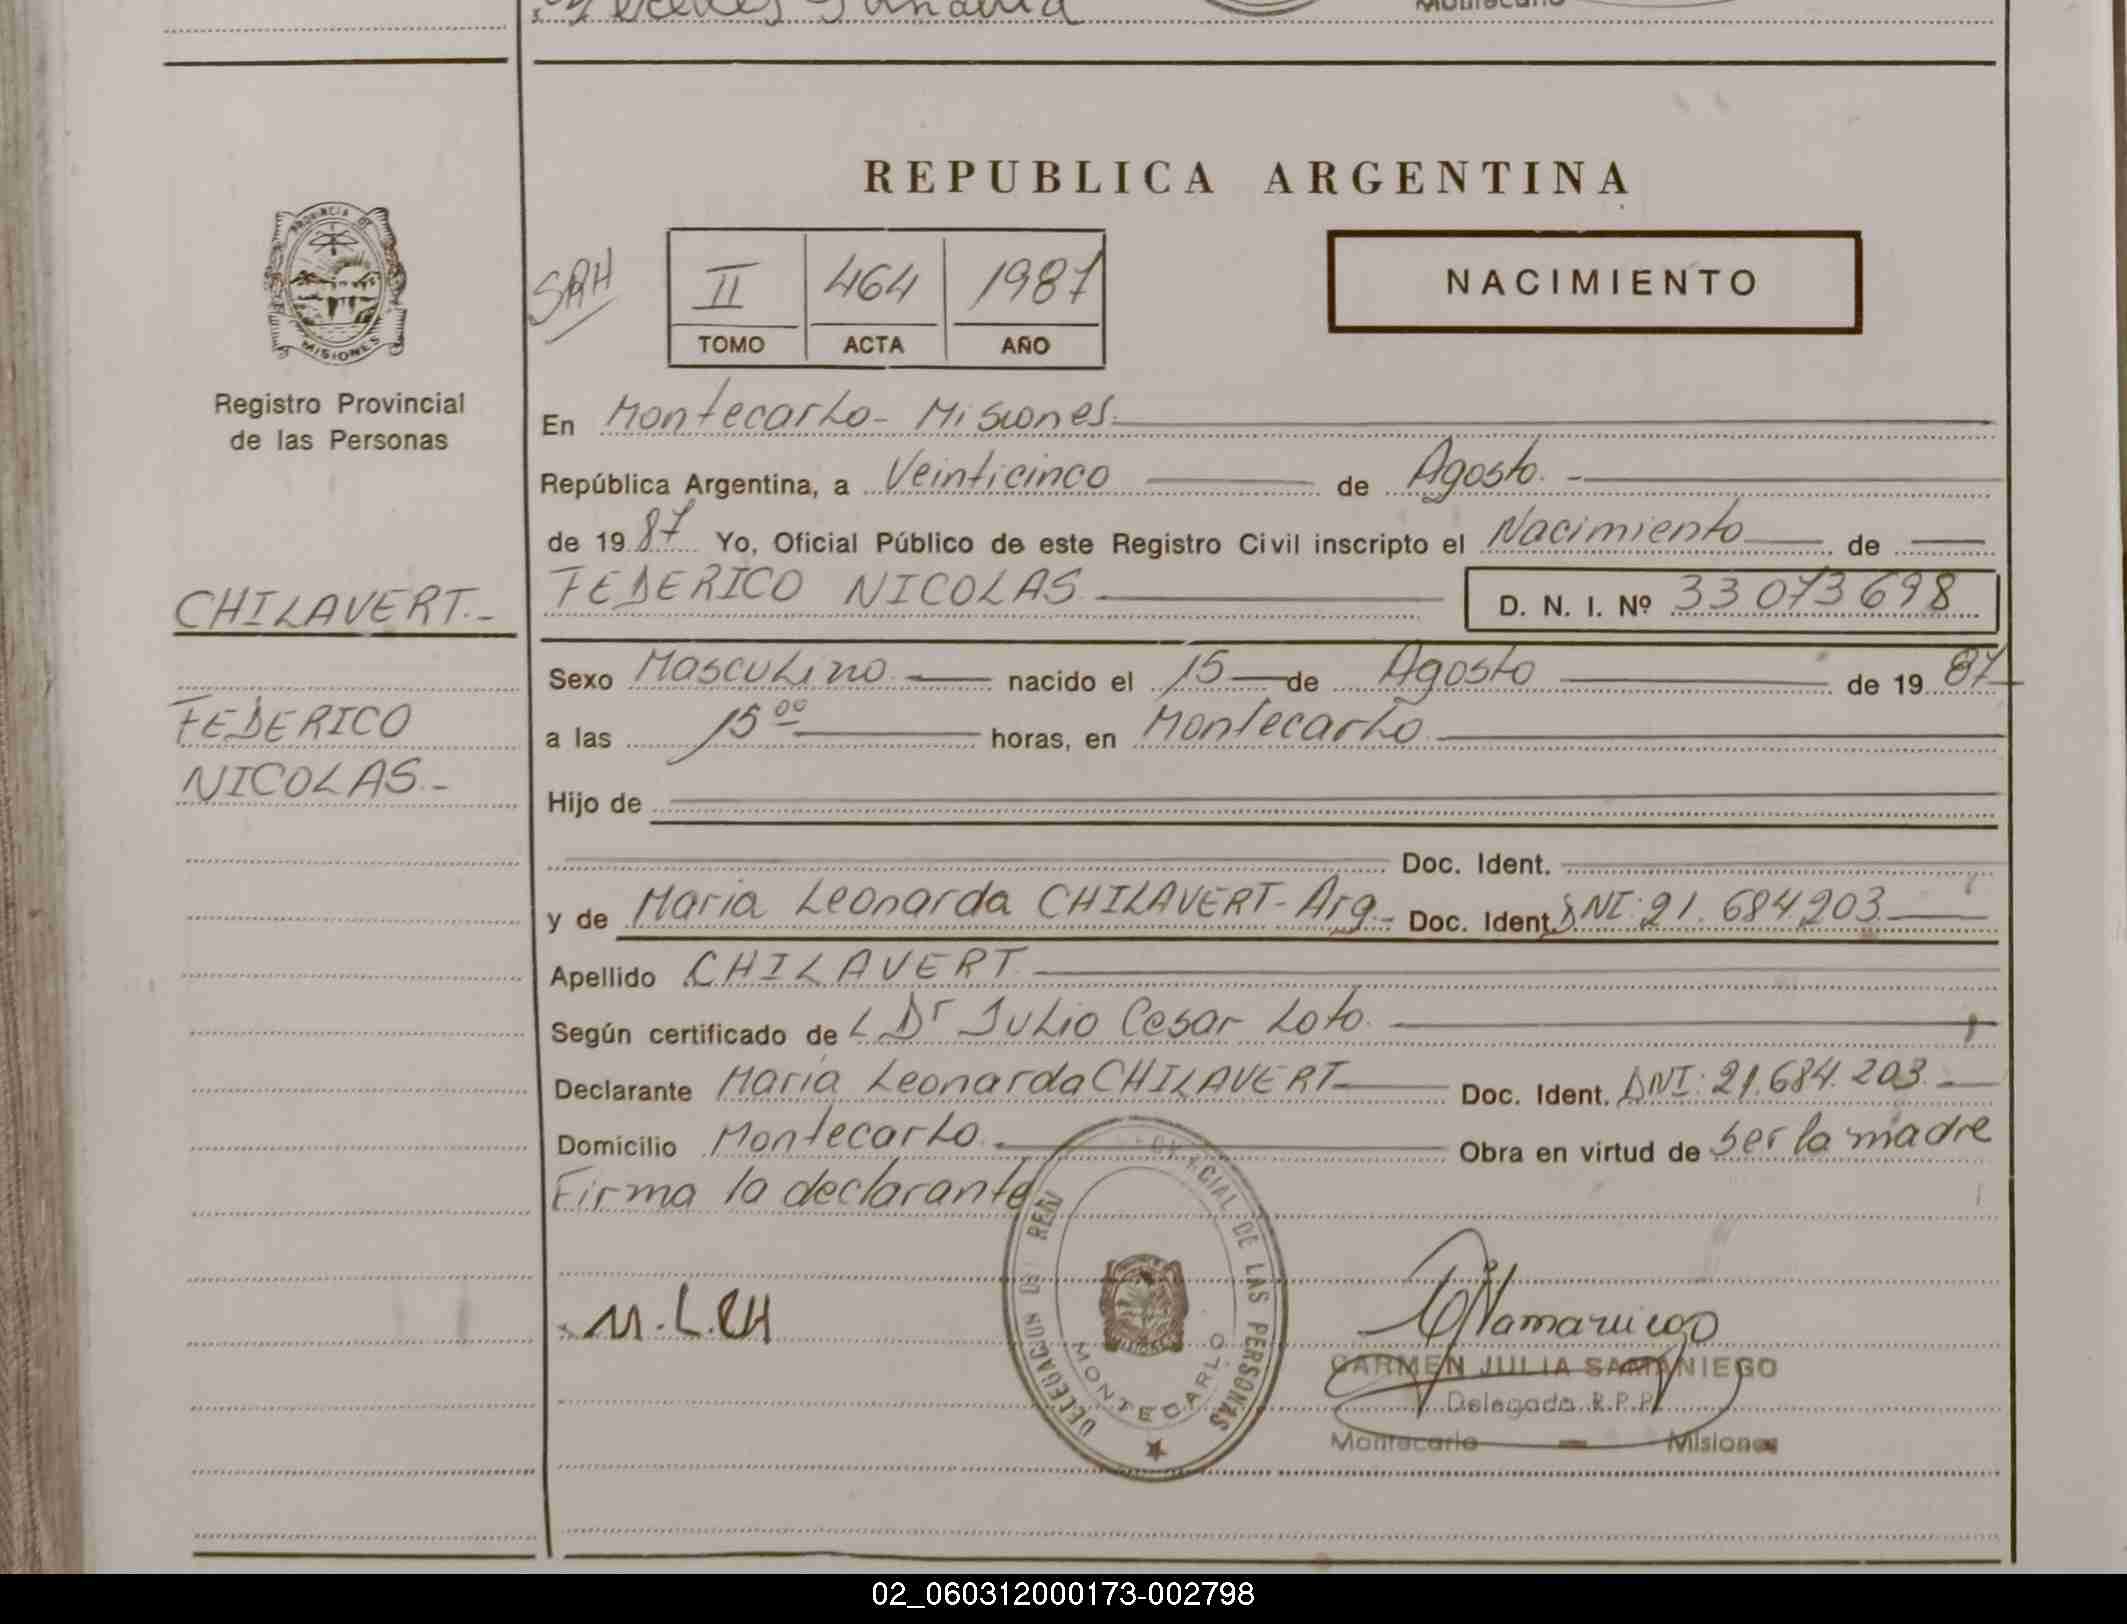 PROVINCIA DE
MISIONES
Registro Provincial
de las Personas
CHILAVERT.-
FEDERICO
NICOLAS.-
REPUBLICA ARGENTINA
II 464 1987
TOMO ACTA AÑO
NACIMIENTO
En Montecarlo- Misiones.
República Argentina, a Veinticinco de Agosto.-
de 1987 Yo, Oficial Público de este Registro Civil inscripto el Nacimiento de
FEDERICO NICOLAS D. N. I. Nº 33073698
Sexo Masculino nacido el 15 de Agosto de 1987
a las 15 00 horas, en Montecarlo.
Hijo de
Doc. Ident.
y de Maria Leonarda CHILAVERT-Arg.- Doc. Ident. DNI: 21.684.203
Apellido CHILAVERT
Según certificado de L Dr Julio Cesar Loto.
Declarante Maria Leonarda CHILAVERT Doc. Ident. DNI: 21.684.203.
Domicilio Montecarlo. Obra en virtud de ser la madre
Firma la declarante
M.L.CH
DE LAS PERSONAS
MONTECARLO
CARMEN JULIA SAMANIEGO
Delegada R.P.P.
Montecarlo - Misiones
02_060312000173-002798